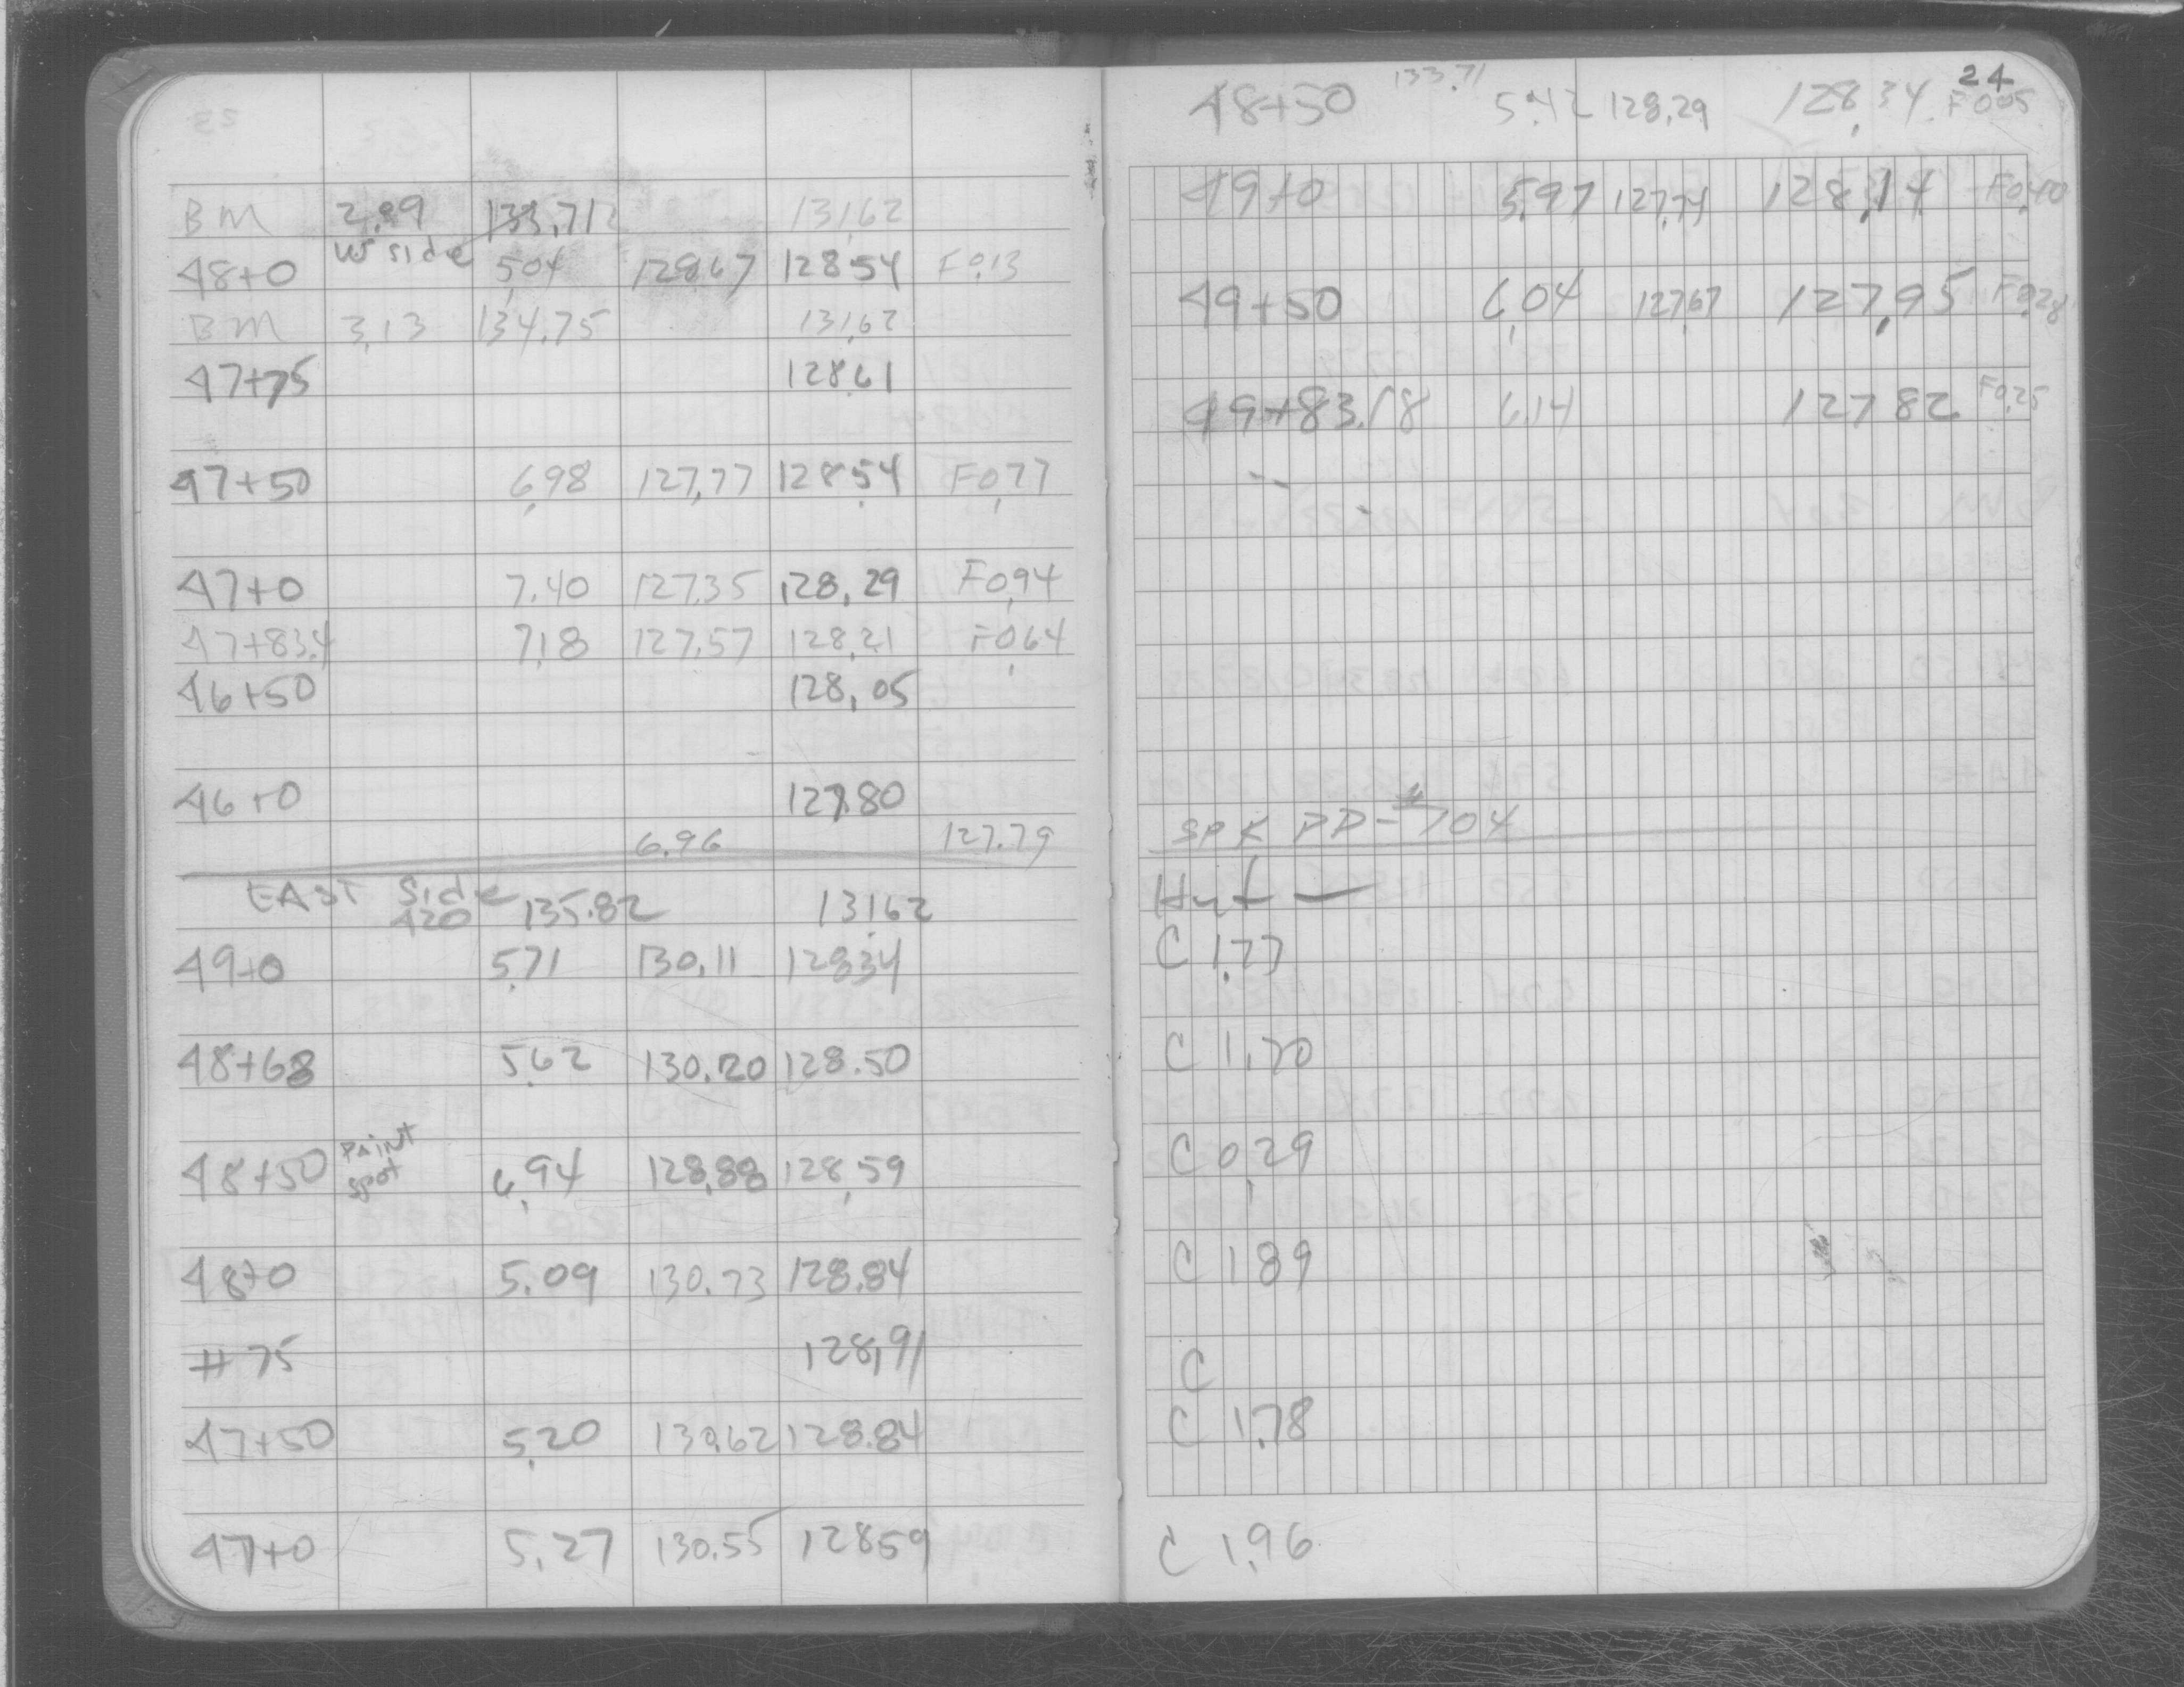 BM 2.09 133.71 131.62
W side
48+0 5.04 128.67 128.54 F0.13
BM 3.13 134.75 131.62
47+75 128.61
47+50 6.98 127.77 128.54 F0.77
47+0 7.40 127.35 128.29 F0.94
47+83.4 7.18 127.57 128.21 F0.64
46+50 128.05
46+0 127.80
6.96 127.79
EAST Side
4.20 135.82 131.62
49+0 5.71 130.11 128.34
48+68 5.62 130.20 128.50
48+50 PAINT spot 6.94 128.88 128.59
48+0 5.09 130.73 128.84
+75 128.91
47+50 5.20 130.62 128.84
47+0 5.27 130.55 128.59
24
48+50 133.71 5.42 128.29 128.34 F0.05
49+0 5.97 127.74 128.14 F0.40
49+50 6.04 127.67 127.95 F0.28
49+83.18 6.14 127.82 F0.25
SPK PP-#704
Hut —
C 1.77
C 1.70
C 0.29
C 1.89
C
C 1.78
C 1.96